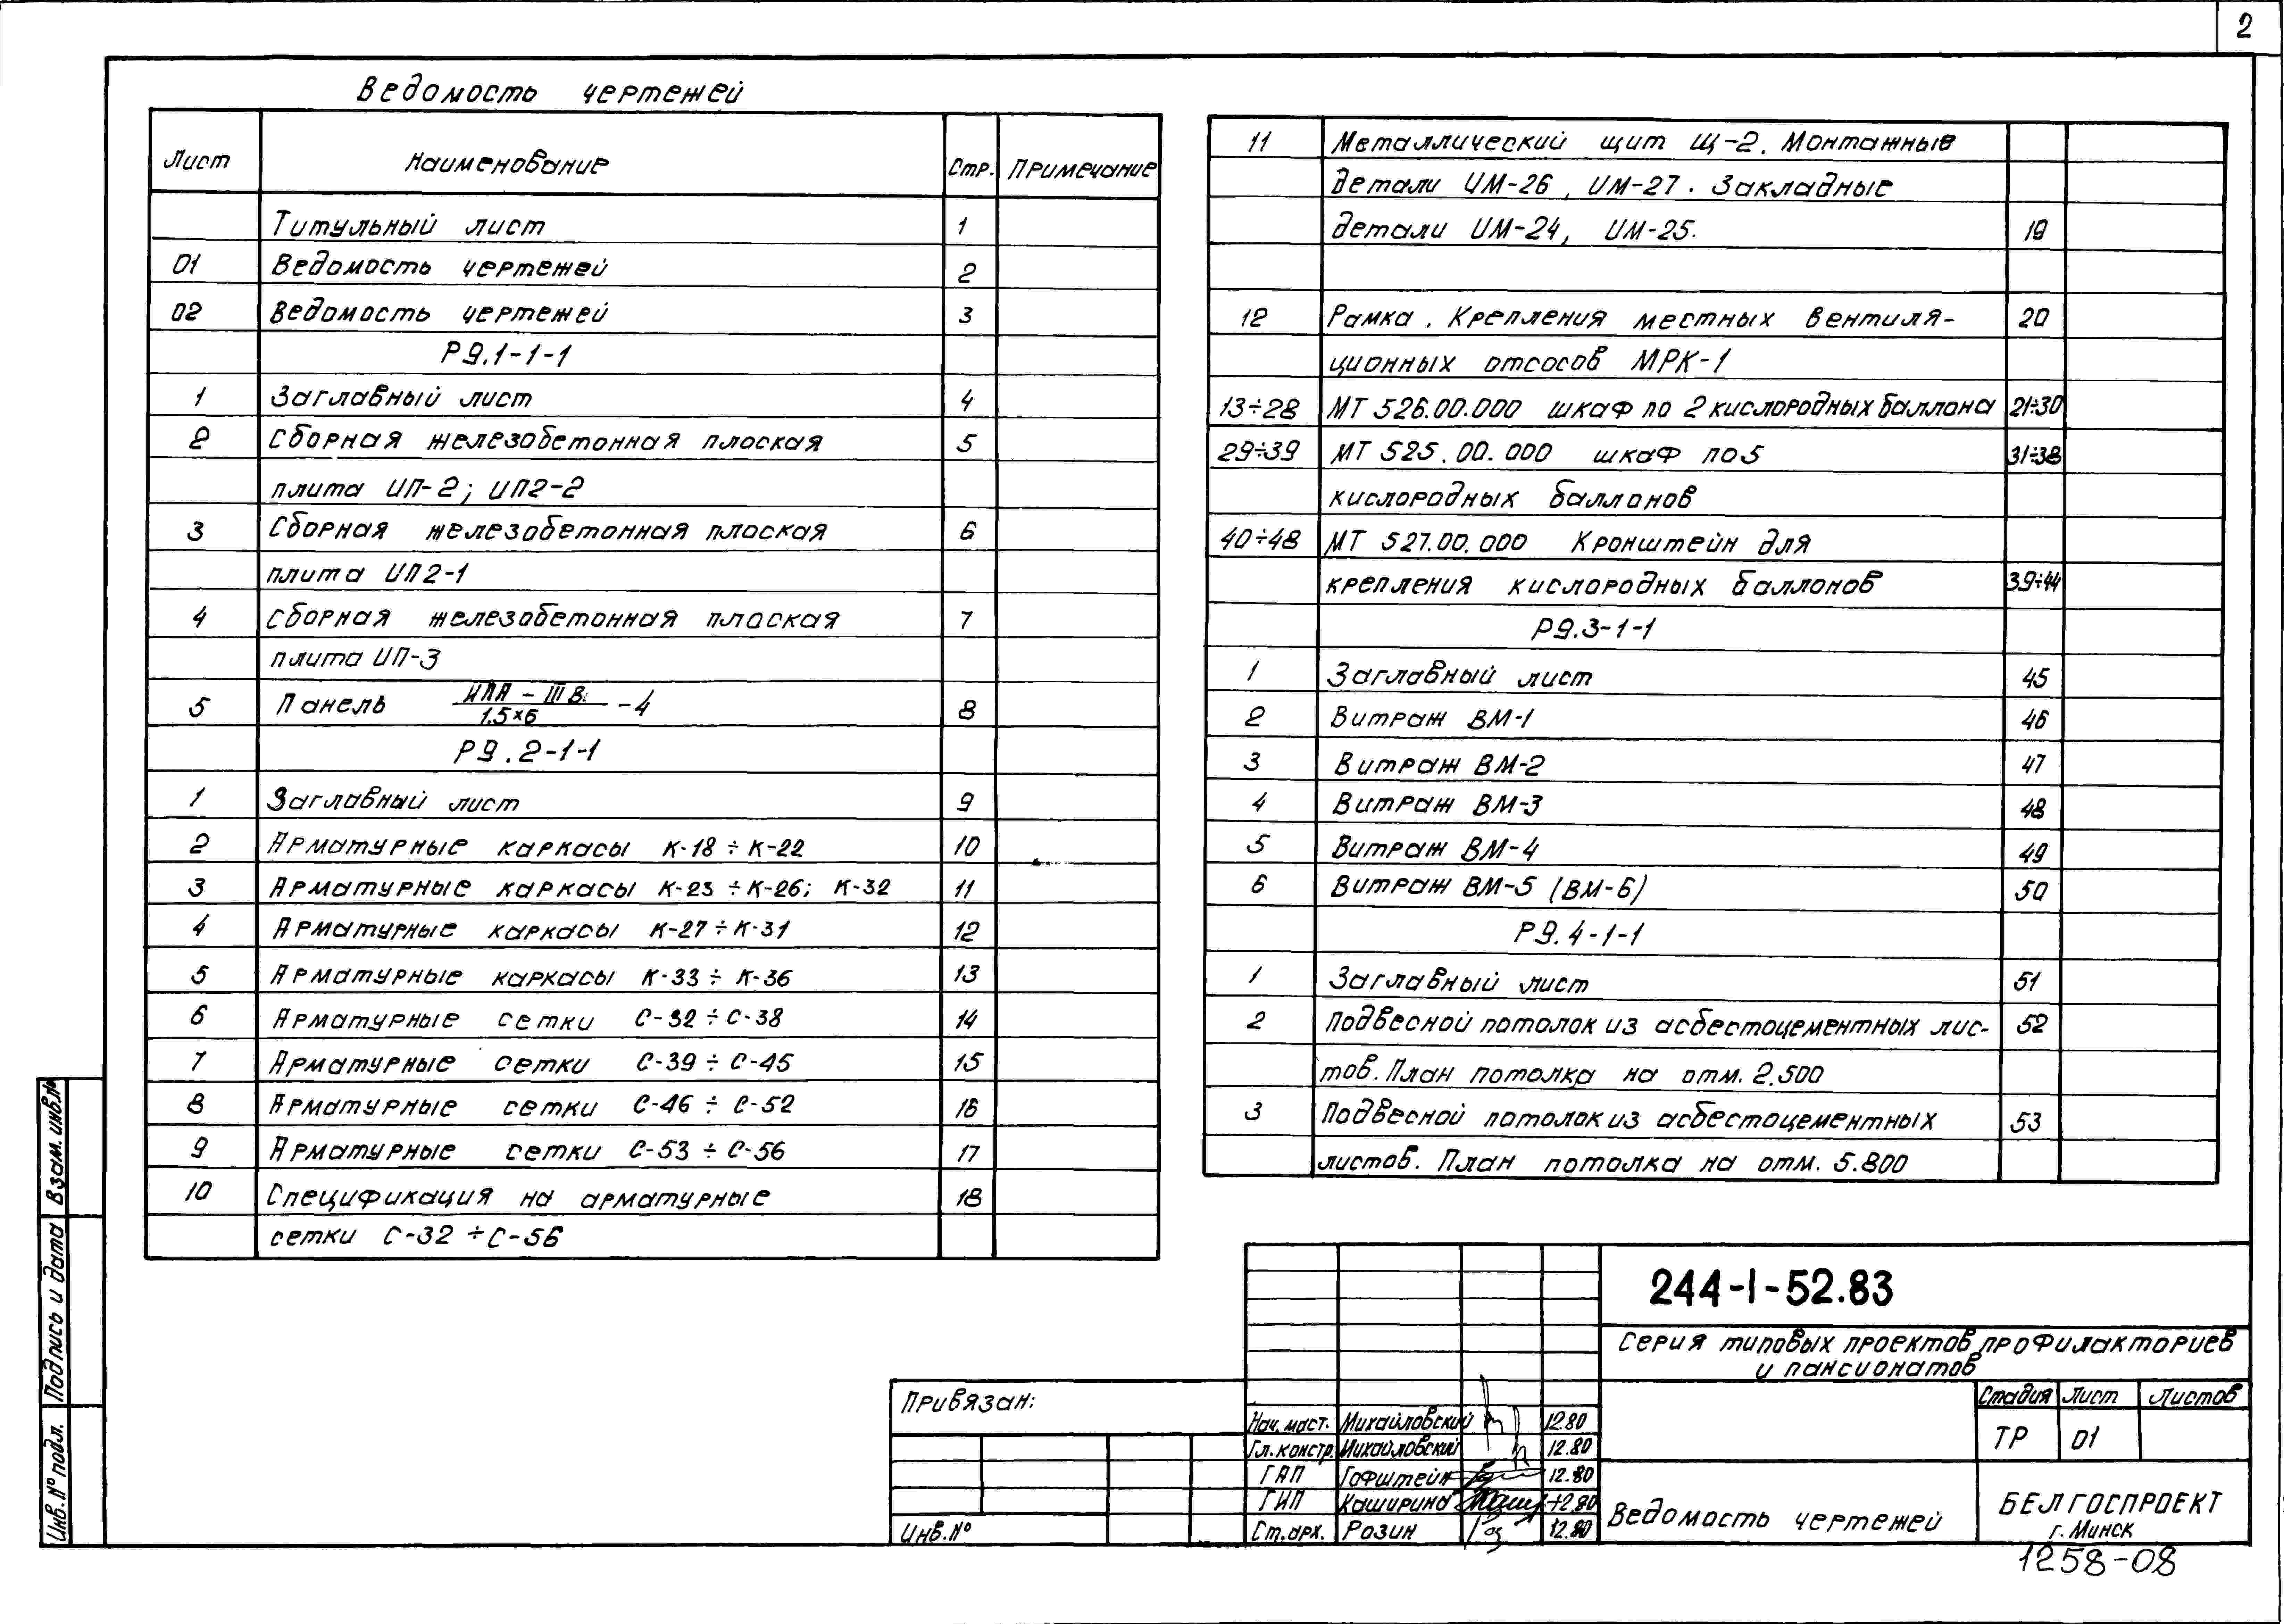 2
Ведомость чертежей
Лист Наименование Стр. Примечание
Титульный лист 1
01 Ведомость чертежей 2
02 Ведомость чертежей 3
Р9.1-1-1
1 Заглавный лист 4
2 Сборная железобетонная плоская 5
плита ИП-2; ИП2-2
3 Сборная железобетонная плоская 6
плита ИП2-1
4 Сборная железобетонная плоская 7
плита ИП-3
5 Панель ИПА - III В. / 1.5×6 - 4 8
Р9.2-1-1
1 Заглавный лист 9
2 Арматурные каркасы К-18 ÷ К-22 10
3 Арматурные каркасы К-23 ÷ К-26; К-32 11
4 Арматурные каркасы К-27 ÷ К-31 12
5 Арматурные каркасы К-33 ÷ К-36 13
6 Арматурные сетки С-32 ÷ С-38 14
7 Арматурные сетки С-39 ÷ С-45 15
8 Арматурные сетки С-46 ÷ С-52 16
9 Арматурные сетки С-53 ÷ С-56 17
10 Спецификация на арматурные 18
сетки С-32 ÷ С-56
11 Металлический щит Щ-2. Монтажные
детали ИМ-26, ИМ-27. Закладные
детали ИМ-24, ИМ-25. 19
12 Рамка. Крепления местных вентиля- 20
ционных отсосов МРК-1
13÷28 МТ 526.00.000 шкаф по 2 кислородных баллона 21÷30
29÷39 МТ 525.00.000 шкаф по 5 31÷38
кислородных баллонов
40÷48 МТ 527.00.000 Кронштейн для
крепления кислородных баллонов 39÷44
Р9.3-1-1
1 Заглавный лист 45
2 Витраж ВМ-1 46
3 Витраж ВМ-2 47
4 Витраж ВМ-3 48
5 Витраж ВМ-4 49
6 Витраж ВМ-5 (ВМ-6) 50
Р9.4-1-1
1 Заглавный лист 51
2 Подвесной потолок из асбестоцементных лис- 52
тов. План потолка на отм. 2.500
3 Подвесной потолок из асбестоцементных 53
листов. План потолка на отм. 5.800
244-1-52.83
Серия типовых проектов профилакториев
и пансионатов
Стадия Лист Листов
ТР 01
Ведомость чертежей
БЕЛГОСПРОЕКТ
г. Минск
Привязан:
Инв.№
Нач. маст. Михайловский 12.80
Гл. констр. Михайловский 12.80
ГАП Гофштейн 12.80
ГИП Каширина 12.80
Ст. арх. Розин 12.80
Взам. инв.№
Подпись и дата
Инв.№ подл.
1258-08